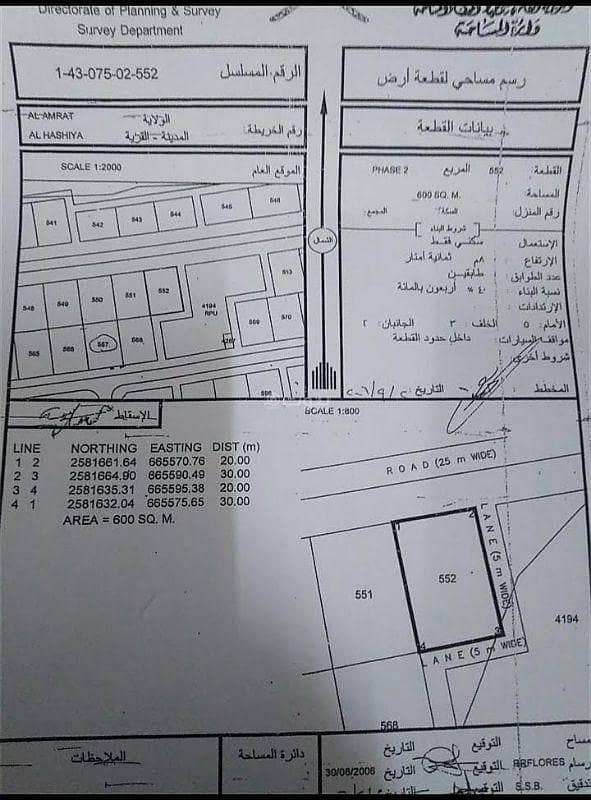 Directorate of Planning & Survey
Survey Department
1-43-075-02-552 الرقم المسلسل
رسم مساحي لقطعة أرض
AL AMRAT الولاية
AL HASHIYA المدينة - القرية
رقم الخريطة:
بيانات القطعة
SCALE 1:2000 الموقع العام
541 542 543 544 545 546
548 549 550 551 552
565 566 567 568
4194
RPU
513
569 570
الشمال
القطعة: 552 المربع PHASE 2
المساحة: 600 SQ. M.
رقم المنزل: السكة: المجمع:
شروط البناء
الإستعمال سكني فقط
الإرتفاع ٨م ثمانية أمتار
عدد الطوابق: طابقين
نسبة البناء: ٤٠ % أربعون بالمائة
الإرتدادات:
الأمام: ٥ الخلف: ٣ الجانبان: ٢
مواقف السيارات: داخل حدود القطعة
شروط أخرى
المخطط التاريخ:
SCALE 1:800
الإسقاط
LINE NORTHING EASTING DIST (m)
1 2 2581661.64 665570.76 20.00
2 3 2581664.90 665590.49 30.00
3 4 2581635.31 665595.38 20.00
4 1 2581632.04 665575.65 30.00
AREA = 600 SQ. M.
ROAD (25 m WIDE)
1 2
LANE (5 m WIDE)
551
552
4194
4 3
LANE (5 m WIDE)
568
الملاحظات
دائرة المساحة
التاريخ التوقيع مساح
30/06/2006 التاريخ التوقيع RRFLORES رسام
التاريخ التوقيع S.S.B. تدقيق